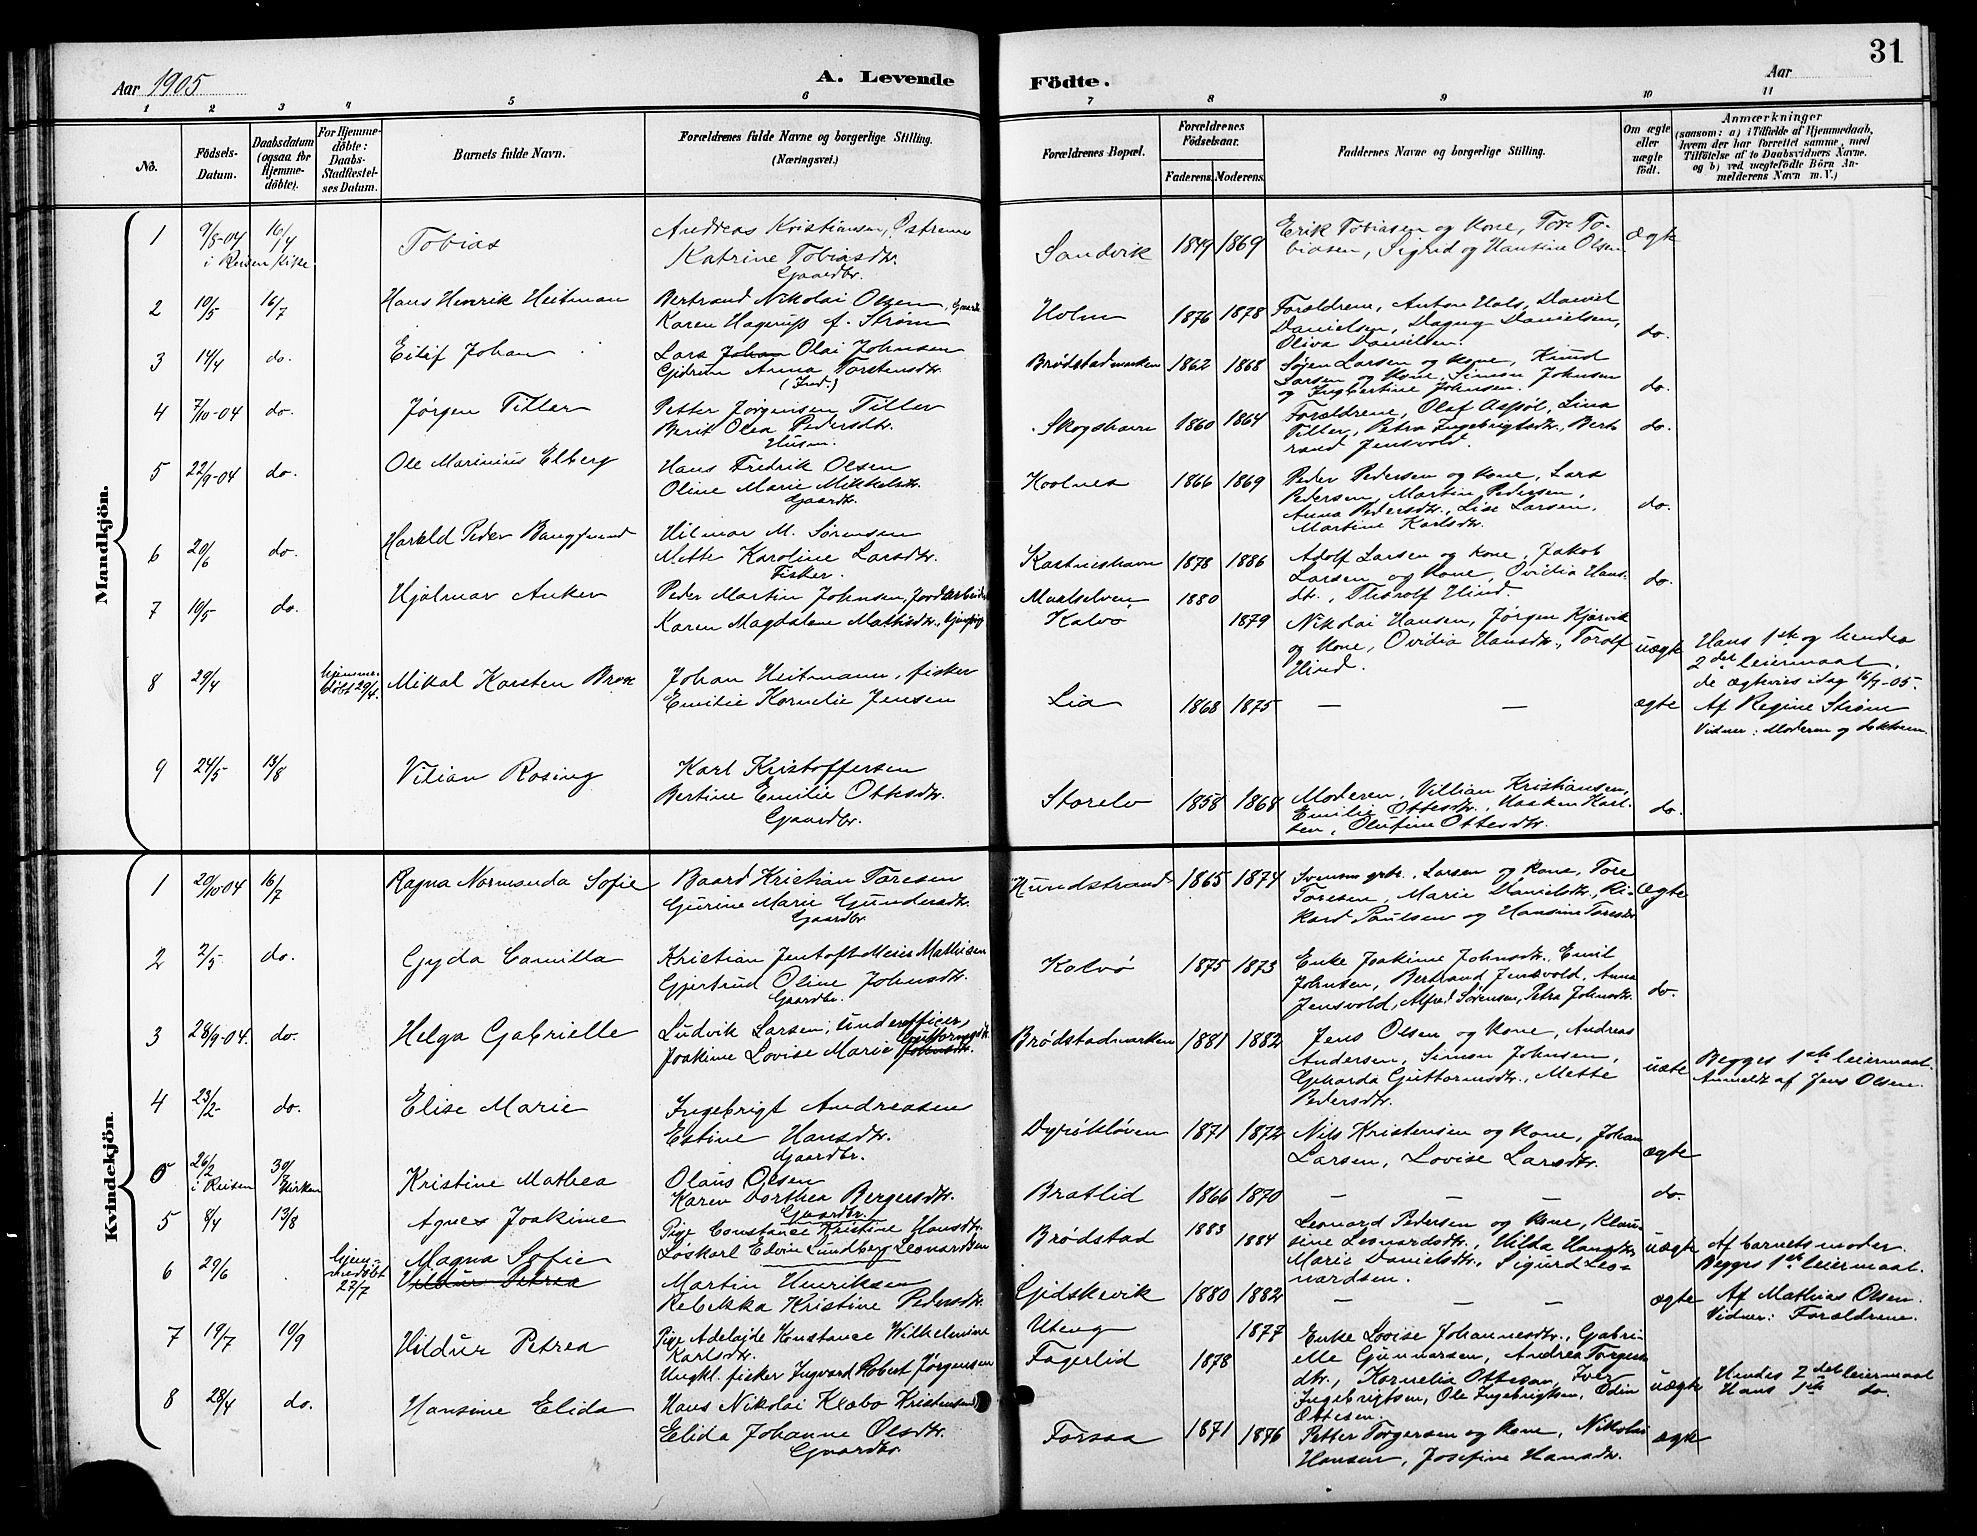 31
Aar 1905
A. Levende
Födte.
Aar
1 2 3 4 5 6 7 8 9 10 11
No.
Födsels-
Datum.
Daabsdatum
(ogsaa for
Hjemme-
döbte).
For Hjemme-
döbte:
Daabs-
Stadfæstel-
ses Datum.
Barnets fulde Navn.
Forældrenes fulde Navne og borgerlige Stilling.
(Næringsvei.)
Forældrenes Bopæl.
Forældrenes
Födselsaar.
Faderens. Moderens.
Faddernes Navne og borgerlige Stilling.
Om ægte
eller
uægte
födt.
Anmærkninger
(saasom: a) i Tilfælde af Hjemmedaab,
hvem der har forrettet samme, med
Tilföielse af to Daabsvidners Navne.
og b) ved uægtefödte Börn An-
melderens Navn m. V.)
Mandkjön.
1 9/8-04 16/4
i Reisen kirke
Tobias
Andreas Kristiansen,
Katrine Tobiasdtr.
Gaardbr.
Sandvik 1849 1869
Erik Tobiasen og kone, Tore To-
biasen, Sigrid og Hansine Olsen
ægte
2 10/5 16/7
Hans Henrik Heitman
Bertrand Nikolai Olsen, Gaardb
Karen Hagerup f. Strøm
Holm 1876 1878
Forældrene, Anton Hals, Daniel
Danielsen, Dagny Danielsen,
Oliva Danielsen.
do.
3 14/4 do.
Eilif Johan
Lars Johan Olai Johnsen
Gjdrun Anna Torstensdtr.
(Ind.)
Brødstadmarken 1862 1868
Søjen Larsen og kone, Knud
Larsen og kone, Simon Johnsen
og Ingbertine Johnsen.
do.
4 7/10-04 do.
Jørgen Tiller
Petter Jørgensen Tiller
Berit Olea Pedersdtr.
Husm.
Skogshavn 1860 1864
Forældrene, Olaf Aspøl, Lina
Tiller, Petra Ingebrigtsdtr., Bert-
rand Jensvold.
do.
5 22/9-04 do.
Ole Marinius Elberg
Hans Fredrik Olsen
Oline Marie Mikkelsdtr.
Gaardb.
Hoolnes 1866 1869
Peder Pedersen og kone, Lars
Pedersen, Martin Pedersen,
Anna Pedersdtr., Lise Larsen,
Martine Karlsdtr.
do.
6 20/6 do.
Harald Peder Banglund
Hilmar M. Sørensen
Mette Karoline Larsdtr.
Fisker.
Kastneshavn 1878 1886
Adolf Larsen og kone, Jakob
Larsen og kone, Ovidia Hans-
dtr., Thorolf Hind.
do.
7 10/5 do.
Hjalmar Anker
Peder Martin Johnsen, Jordarbeider
Karen Magdalene Mathisdtr.,
Maalselven 1880
Kalvø 1879
Nikolai Hansen, Jørgen Kjørvik
og kone, Ovidia Hansdtr., Torolf
Hind.
uægte
Hans 1ste og hendes
2det leiermaal.
de ægtevies idag 16/7-05.
8 29/4
hjemme-
døbt 29/4
Mikal Karsten Brox
Johan Heitmann, fisker
Emilie Kornelie Jensen
Lia 1868 1875 — —
ægte
Af Regine Strøm
Vidner: Moderen og
9 24/5 13/8
Vilian Rosing
Karl Kristoffersen
Bertine Emilie Ottesdtr.
Gaardbr.
Storelv 1858 1868
Moderen, Villian Kristiansen,
Emilie Ottesdtr., Haaken Karl-
sen, Olufine Ottesdtr.
do.
Kvindekjön.
1 20/10-04 16/7
Ragna Normunda Sofie
Baard Kristian Toresen
Gurine Marie Gundersdtr.
Gaardbr.
Hundstrand 1865 1874
Svensm gbr. Larsen og kone, Tore
Toresen, Marie Danielsdtr., Ri-
kard Paulsen og Hansine Toresdtr
ægte
2 2/5 do.
Gyda Camilla
Kristian Jentoft Meier Mathisen
Gjertrud Oline Johnsdtr.
Gaardbr.
Kalvø 1875 1873
Enke Joakime Johnsdtr., Emil
Johnsen, Bertrand Jensvold, Anna
Jensvold, Alfred Sørensen, Petra Johnsdtr.
do.
3 28/9-04. do.
Helga Gabrielle
Ludvik Larsen, Underofficer,
Joakime Lovise Marie Johnsdtr. Guttormsdtr.
Brødstadmarken 1881 1882
Jens Olsen og kone, Andreas
Andersen, Simon Johnsen,
Geharda Guttormsdtr., Mette
Pedersdtr.
uæte
Begges 1ste leiermaal.
Anmeldt af Jens Olsen.
4 23/2 do.
Elise Marie
Ingebrigt Andreasen
Estine Hansdtr.
Gaardbr.
Dyrøkløven 1871 1872
Nils Kristensen og kone, Johan
Larsen, Lovise Larsdtr.
ægte
5 26/2 30/7
i Reisen kirken
Kristine Mathea
Olaus Olsen
Karen Dorthea Bergersdtr.
Gaardbr.
Bratlid 1866 1870 — — —
do.
5 8/4 13/8
Agnes Joakime
Pige Constance Kristine Hansdtr.
Løskarl Edvin Lundberg Leonardsen
Brødstad 1883 1884
Leonard Pedersen og kone, Klau-
sine Leonardsdtr., Hilda Hansdtr.
Marie Danielsdtr., Sigurd Leo-
nardsen.
uægte
Af barnets moder.
Begges 1ste leiermaal.
6 29/6
hjem-
medøbt
27/7
Magna Sofie
Vildur Petrea
Martin Henriksen
Rebekka Kristine Pedersdtr.
Gjdskevik 1880 1882 — — —
ægte
Af Mathias Olsen.
Vidner: Forældrene.
7 19/7 10/9
Vildur Petrea
Pige Adelajde Konstance Wilhelmine
Karlsdtr.
Ungkl. fisker Ingvard Robert Jørgensen
Uteng 1877
Fagerlid 1878
Enke Lovise Johannesdtr., Gabri-
elle Gunnarsen, Andrea Torgers-
dtr., Kornelia Ottesen, Iver
Ingebrigtsen, Ole Ingebrigtsen, Odin
Ottesen.
uægte
Hendes 2det leiermaal
Hans 1ste do.
8 28/4 do.
Hansine Elida
Hans Nikolai Klæbo Kristensen
Elida Johanne Olsdtr.
Gaardbr.
Forsaa 1871 1876
Petter Torgersen og kone, Nikolai
Hansen, Josefine Hansdtr.
ægte